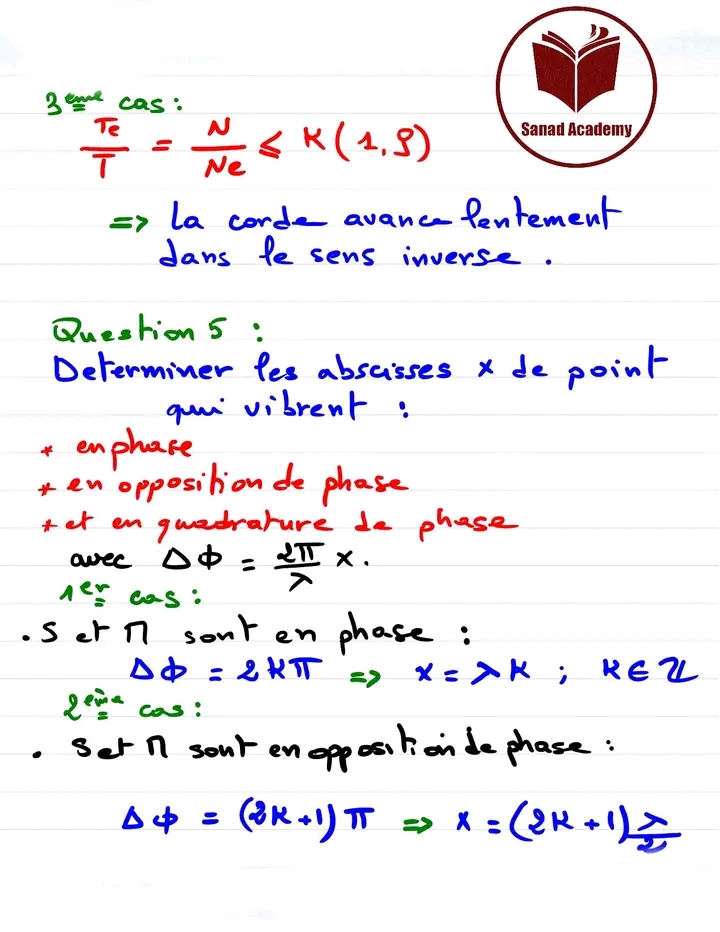 Sanad Academy
3ème cas :
Te/T = N/Ne ⩽ K(1,9)
=> La corde avance lentement
dans le sens inverse .
Question 5 :
Determiner les abscisses x de point
qui vibrent :
* en phase
* en opposition de phase
* et en quadrature de phase
avec ΔΦ = 2π/λ x .
1er cas :
. S et M sont en phase :
ΔΦ = 2Kπ => x = λK ; K ∈ ℤ
2ème cas :
. S et M sont en opposition de phase :
ΔΦ = (2K+1)π => x = (2K+1)λ/2